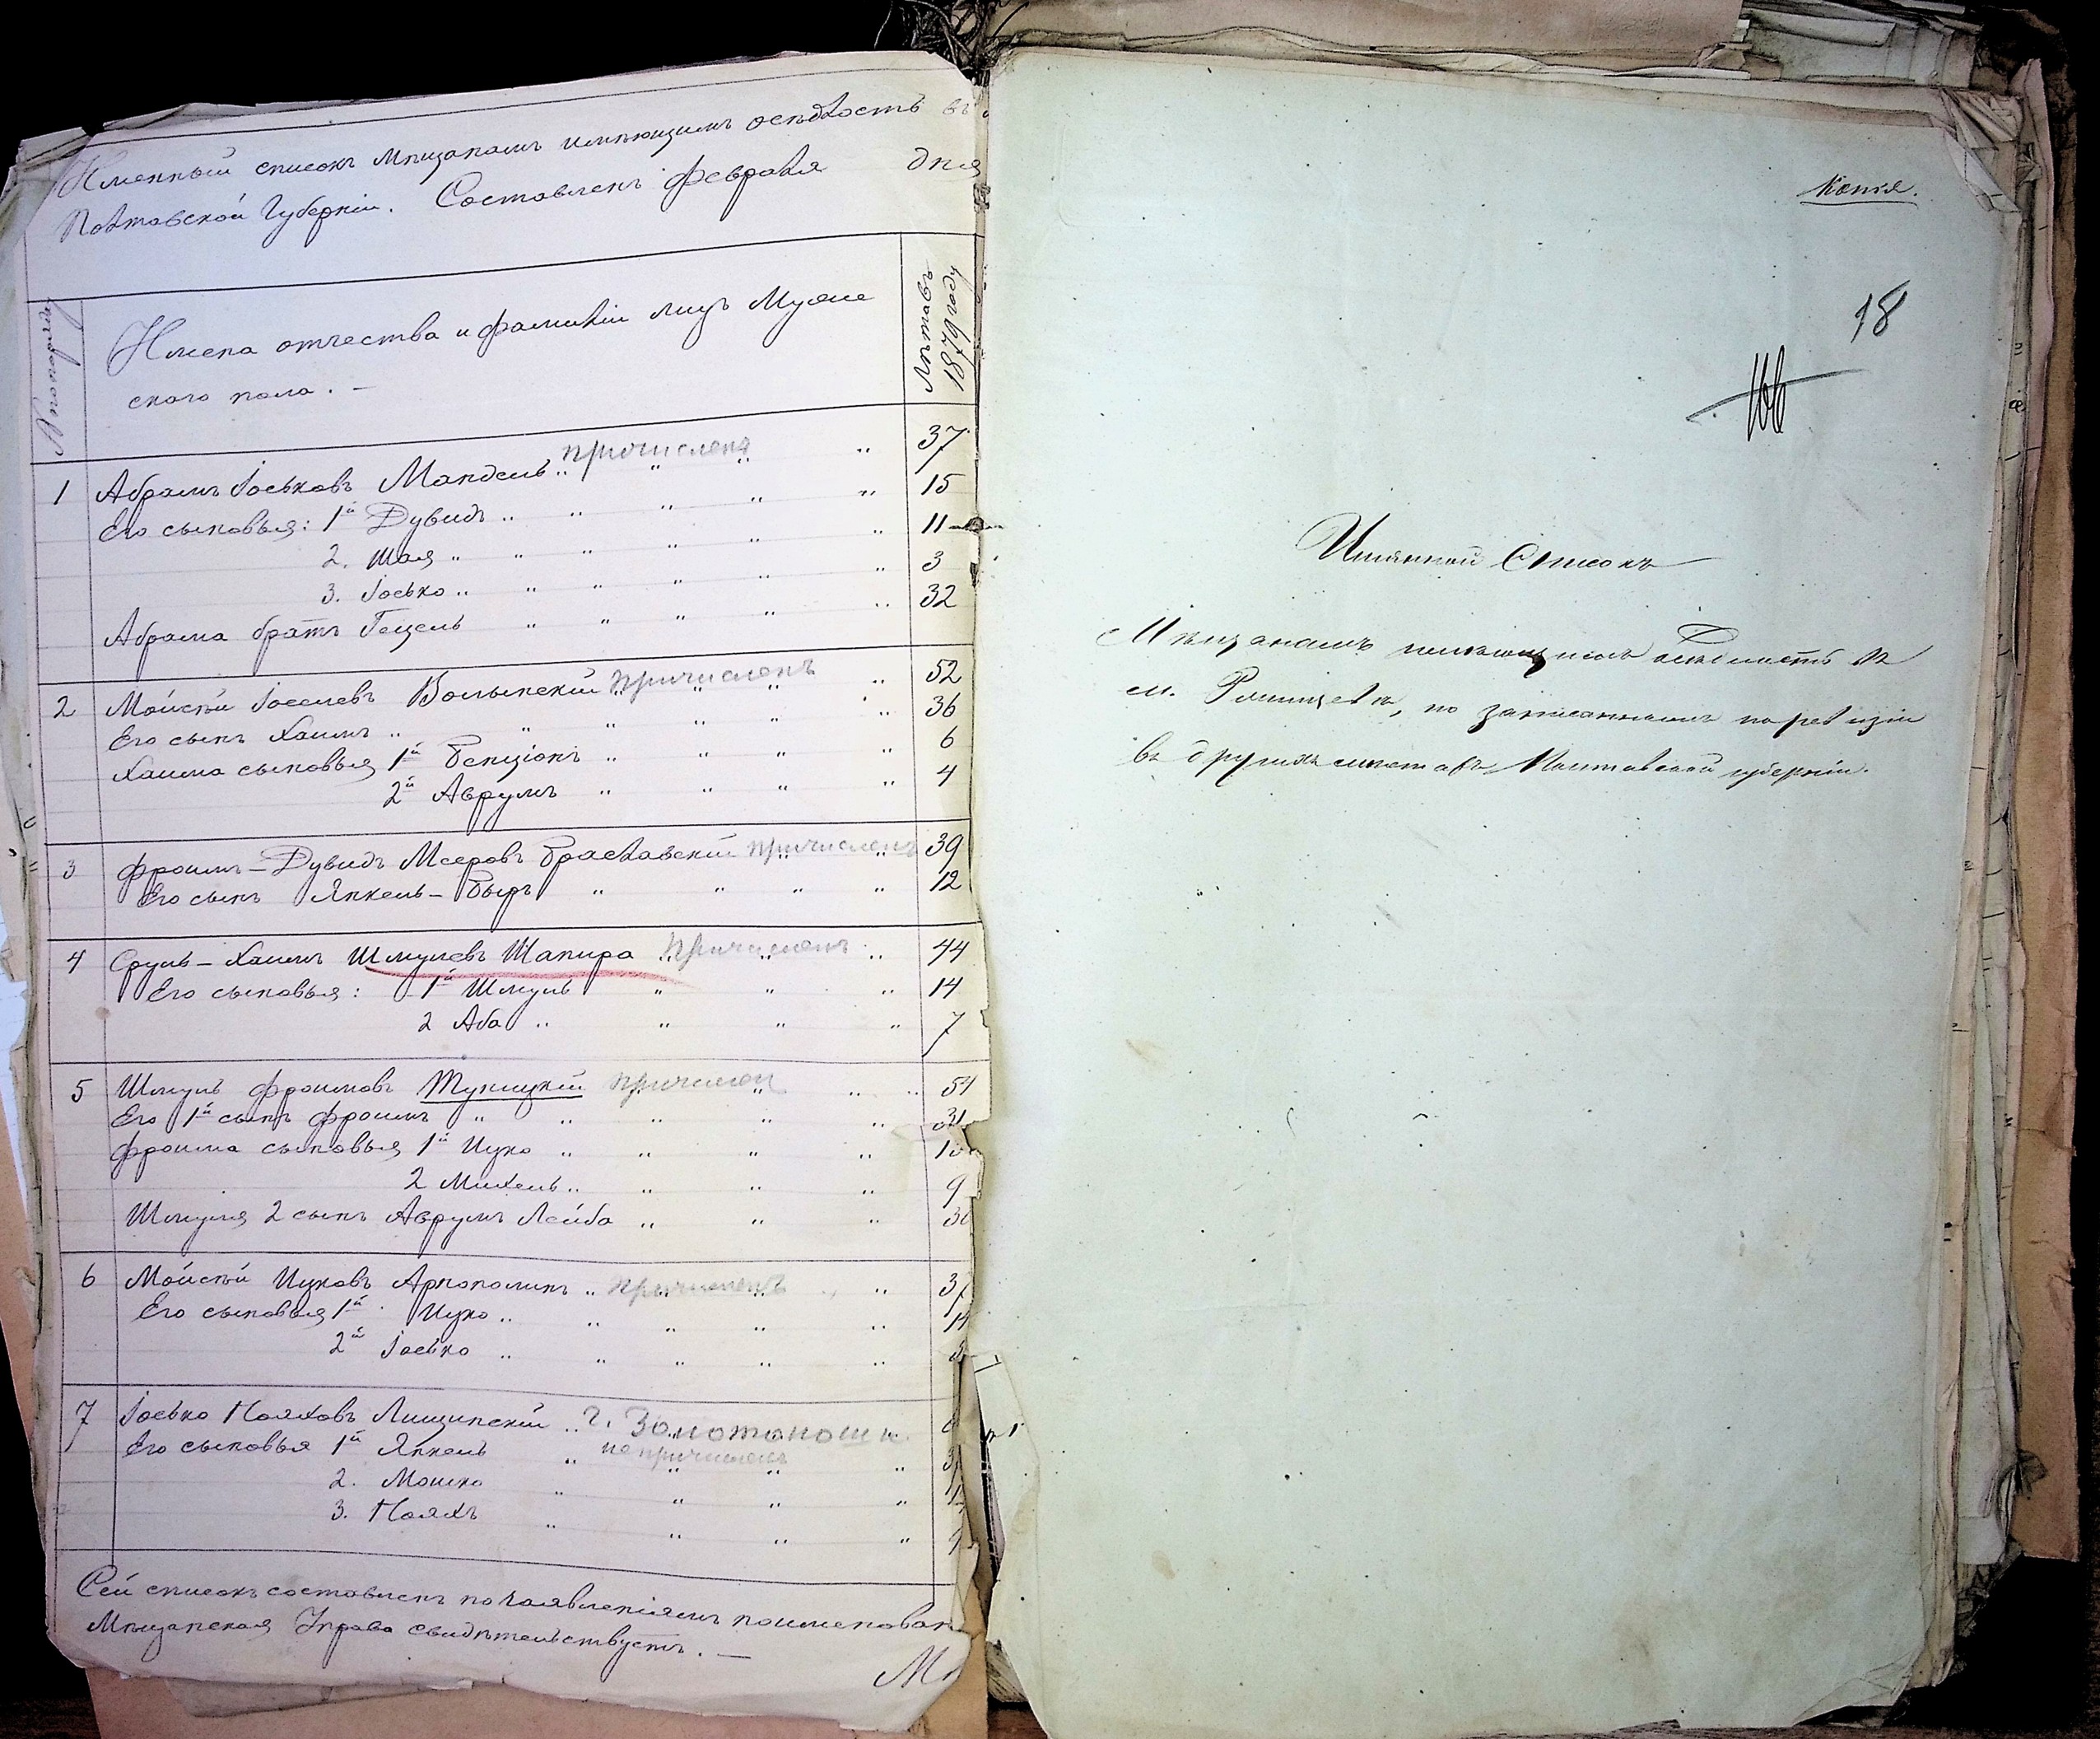 Именный списокъ мѣщанамъ имѣющимъ осѣдлость въ
Полтавской Губерніи. Составленъ февраля дня
№ по порядку
Имена отчества и фамиліи лицъ Муже
скаго пола. –
Лѣтъ въ
1879 году
1 Абрамъ Іоськовъ Мандель причисленъ 37
Его сыновья: 1й Дувидъ 15
2. Шая 11
3. Іосько 3
Абрама братъ Гецель 32
2 Мойсѣй Іоселевъ Волынскій причисленъ 52
Его сынъ Хаимъ 36
Хаима сыновья 1й Бенціонъ 6
2й Аврумъ 4
3 Фроимъ-Дувидъ Мееровъ Браславскій причисленъ 39
Его сынъ Янкель-Быръ 12
4 Сруль-Хаимъ Шмулевъ Шапира причисленъ 44
Его сыновья: 1й Шмуль 14
2 Аба 7
5 Шмуль Фроимовъ Туницкій причислен 54
Его 1й сынъ Фроимъ 31
Фроима сыновья 1й Ицко
2 Михель 9
Шмуля 2 сынъ Аврумъ Лейба 30
6 Мойсѣй Ицковъ Арнополинъ причисленъ
Его сыновья 1й Ицко
2й Іосько
7 Іосько Нояховъ Лищинскій г. Золотоноши
Его сыновья 1й Янкель не причисленъ
2. Мошко
3. Нояхъ
Сей списокъ составленъ по заявленіямъ поименован
Мѣщанская Управа свидѣтельствуетъ. –
Копія.
18
Имянной Списокъ
Мѣщанамъ имѣющимъ осѣдлость въ
м. , но записаннымъ по ревизіи
въ другихъ мѣстахъ Полтавской губерніи.